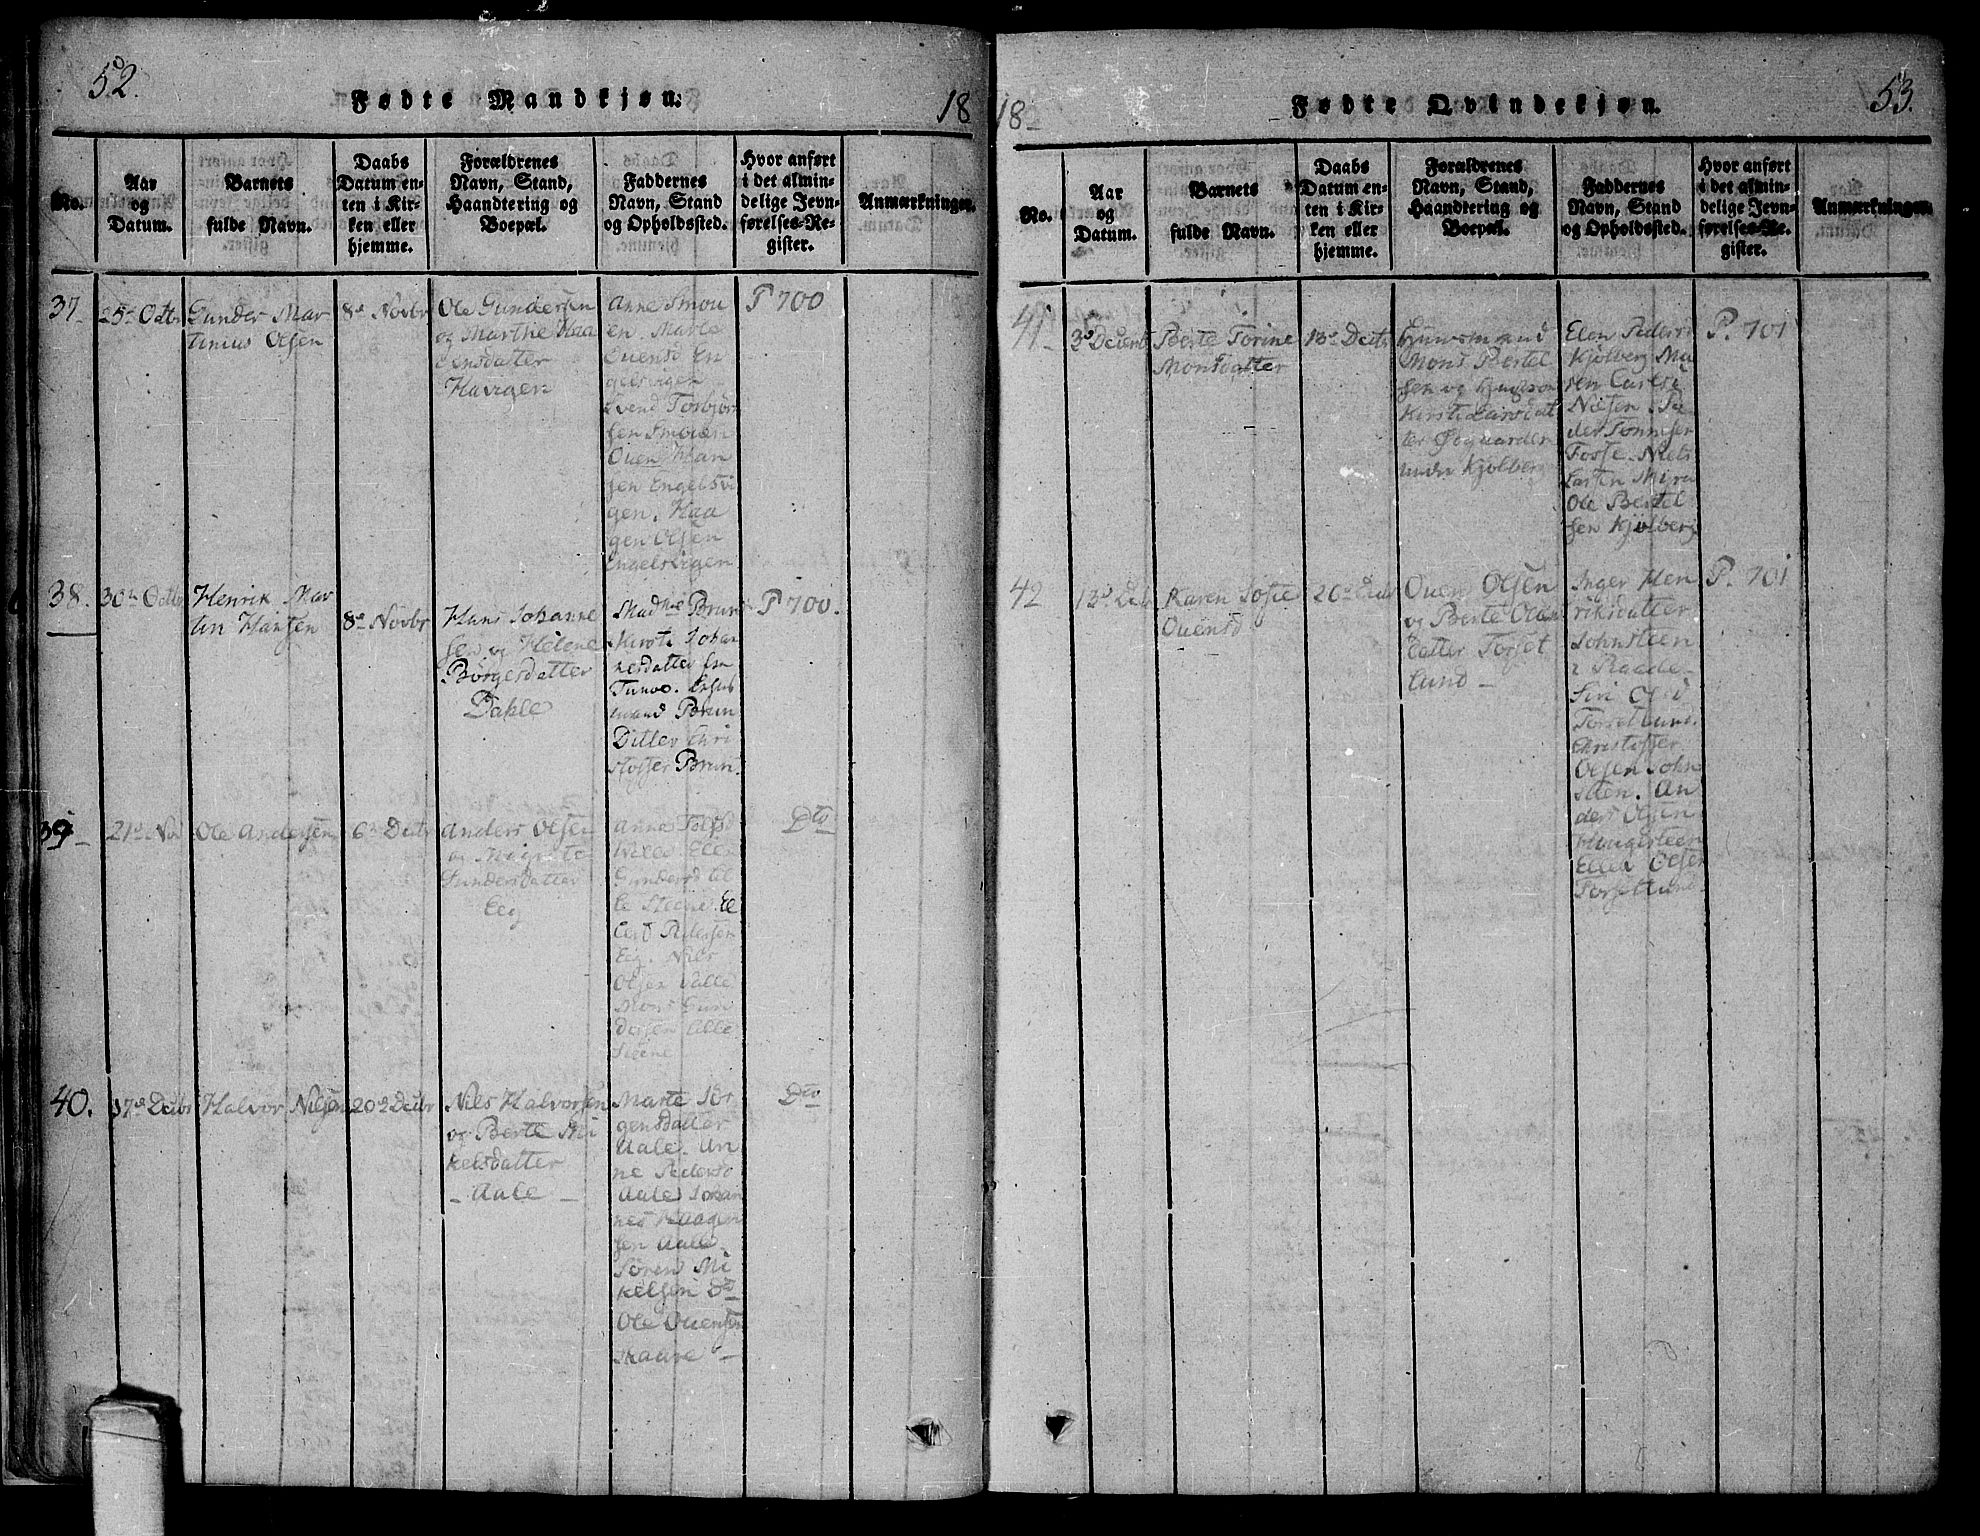 52.
Fødte Mandkjøn.
18
No.
Aar
og
Datum.
Barnets
fulde Navn.
Daabs
Datum en-
ten i Kir-
ken eller
hjemme.
Forældrenes
Navn, Stand,
Haandtering og
Boepæl.
Faddernes
Navn, Stand
og Opholdssted.
Hvor anført
i det almin-
delige Jevn-
førelses-Re-
gister.
Anmærkninger.
37
25de Octbr
Gunder Mar
tinius Olsen
8de Novbr
Ole Gundersen
og Marthe Haa
gensdatter
Havigen
Anne Smou
en. Marte
Ouensd En
gelsvigen
Svend Torbjörn
sen Smouen
Ouen Han
sen Engelsvi
gen. Haa
gen Olsen
Engelsvigen
P 700
38.
30te Octbr
Henrik Mar
tin Hansen
8de Novbr
Hans Johanne
sen og Helene
Börgesdatter
Dahle
Mad^me Brun
Kirsti Johan
nesdatter
Tunøe.
mand Brun
Ditlev Chri
stoffer Brun.
P 700.
39
21de Nov
Ole Andersen
6te Decbr
Anders Olsen
og Margrete
Gundersdatter
Eeg
Anne
Gundersd lil
le Steene. El
lert Pedersen
Eeg. Niels
Olsen Valle
Mons Gun
dersen Lille
Steene
Dto
40.
17de Decbr
Halvor Nilsen
20de Decbr
Nils Halvorsen
og Berte Mi
kelsdatter
- Aale -
Marte Jör
gensdatter
Aale. An
ne Pedersd
Aale Johan
nes Haagen
sen Aale
Sören Mi
kelsen Do
Ole Ouensen
Skaare -
Dto
18
Fødte Qvindekjøn.
53.
No.
Aar
og
Datum.
Barnets
fulde Navn.
Daabs
Datum en-
ten i Kir-
ken eller
hjemme.
Forældrenes
Navn, Stand,
Haandtering og
Boepæl.
Faddernes
Navn, Stand
og Opholdssted.
Hvor anført
i det almin-
delige Jevn-
førelses-Re-
gister.
Anmærkninger.
41
3de Decembr
Berte Torine
Monsdatter
13de Decbr
Huusmand
Mons Bertel
sen og
Kirsti Larsdat
ter Ødegaarden
under Kjölberg
Elen Peders
Kjölberg Ma
ren Carls
Næsen. Pe
der Tönnesen
Fosse. Niels
Larsen Myra
Ole Bertel
sen Kjölberg
P. 701
42
13de Decbr
Karen Sofie
Ouensd
26de Decbr
Ouen Olsen
og Berte Olen
datter Torset
lund -
Inger Hen
riksdatter
Johnsteen
i Raade
Siri Olsd
Torsetlund.
Christoffer
Olsen John
steen. An
ders Olsen
Hungersteen
Ellef Olsen
Torsetlund
P. 701